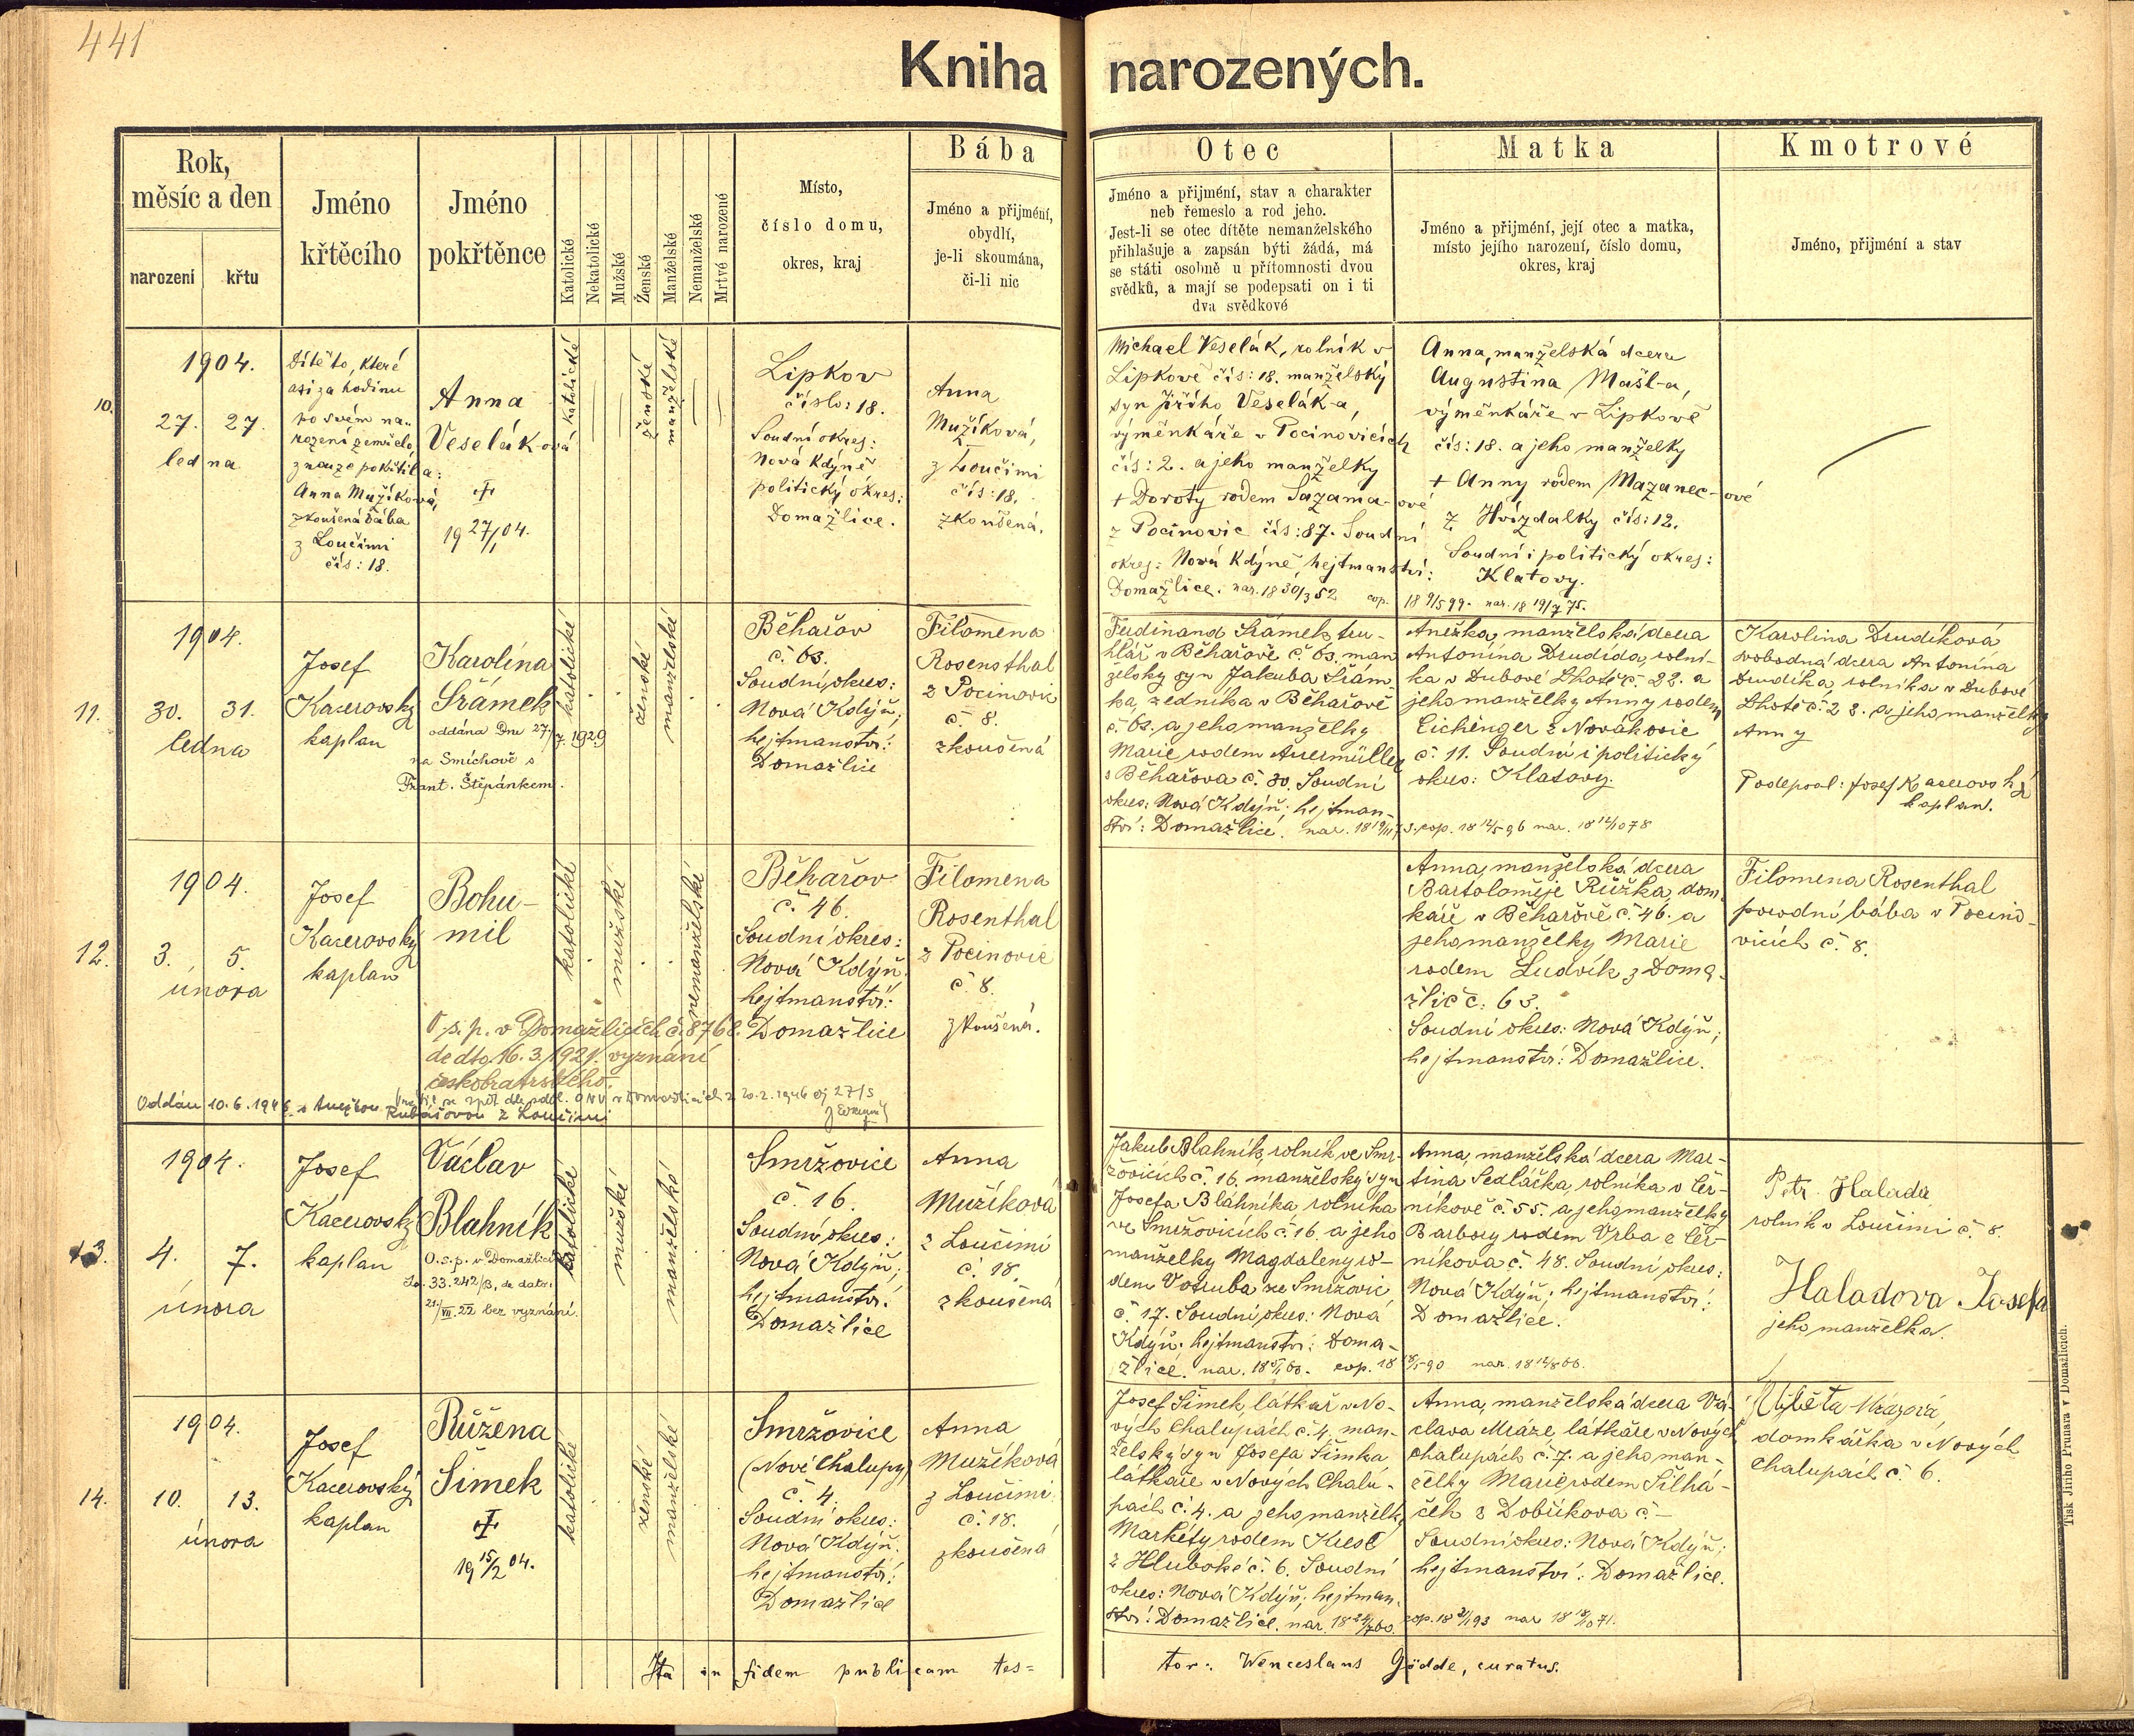 441
Kniha narozených.
Rok,
měsíc a den
narození
křtu
Jméno
křtěcího
Jméno
pokřtěnce
Katolické
Nekatolické
Mužské
Ženské
Manželské
Nemanželské
Mrtvé narozené
Místo,
číslo domu,
okres, kraj
Bába
Jméno a přijméní,
obydlí,
je-li skoumána,
či-li nic
Otec
Jméno a přijmení, stav a charakter
neb řemeslo a rod jeho.
Jest-li se otec dítěte nemanželského
přihlašuje a zapsán býti žádá, má
se státi osobně u přítomnosti dvou
svědků, a mají se podepsati on i ti
dva svědkové
Matka
Jméno a přijmení, její otec a matka,
místo jejího narození, číslo domu,
okres, kraj
Kmotrové
Jméno, přijmení a stav
10.
1904.
27. 27.
ledna
Dítě to, které
asi za hodinu
po svém na-
rození zemřelo,
z nouze pokřtila:
Anna Mužíková,
zkoušená bába
z Loučimi
čís: 18.
Anna
Veselák-ová
†
19 27/1 04.
katolické
ženské
manželské
Lipkov
číslo: 18.
Soudní okres:
Nová Kdýně
politický okres:
Domažlice.
Anna
Mužíková,
z Loučimi
čís: 18.
zkoušená.
Michael Veselák, rolník v
Lipkově čís: 18. manželský
syn Jiřího Veselák-a,
výměnkáře v Pocinovicích
čís: 2. a jeho manželky
+ Doroty rodem Sazama-ové
z Pocinovic čís: 87. Soudní
okres: Nová Kdýně, hejtmanství:
Domažlice. nar. 18 30/3 52 cop. 18 9/5 99. nar. 18 19/7 75.
Anna, manželská dcera
Augustina Mašl-a,
výměnkáře v Lipkově
čís: 18. a jeho manželky
+ Anny rodem Mazanec-ové
z Hvízdalky čís: 12.
Soudní i politický okres:
Klatovy.
11.
1904.
30. 31.
ledna
Josef
Kacerovský
kaplan
Karolína
Šrámek
oddána Dne 27/7. 1929
na Smíchově s
Frant. Štěpánkem.
katolické
ženské
manželské
Běhařov
č. 63.
Soudní okres:
Nová Kdýň;
hejtmanství:
Domažlice
Filomena
Rosensthal
z Pocinovic
č. 8.
zkoušená
Ferdinand Šrámek, tru-
hlář v Běhařově č. 63. man
želský syn Jakuba Šrám-
ka, zedníka v Běhařově
č. 63. a jeho manželky
Marie rodem Auermüller
z Běhařova č. 30. Soudní
okres: Nová Kdýň; hejtman-
ství: Domažlice. cop. 18 12/5 96 nar. 18 12/10 78
Anežka, manželská dcera
Antonína Drudída, rolní-
ka v Dubové Lhotě č. 22. a
jeho manželky Anny rodem
Eichinger z Novákovic
č. 11. Soudní i politický
okres: Klatovy.
Karolina Drudíková
svobodná dcera Antonína
Drudíka, rolníka v Dubové
Lhotě č. 28. a jeho manželky
Anny
Podepsal: Josef Kacerovský
kaplan.
12.
1904.
3. 5.
února
Josef
Kacerovský
kaplan
Bohu-
mil
katolické
mužské
nemanželské
Běhařov
č. 46.
Soudní okres:
Nová Kdýň
hejtmanství:
Domažlice
Filomena
Rosenthal
z Pocinovic
č. 8.
zkoušená.
O. s. p. v Domažlicích č. 8768.
de dto. 16. 3. 1921. vyznání
českobratrského.
Oddán 10. 6. 1946 s Anežkou Kubašovou z Loučimi
Anna, manželská dcera
Bartoloměje Růžka, dom
káře v Běhařově č. 46. a
jeho manželky Marie
rodem Ludvík z Doma-
žlic č. 63.
Soudní okres: Nová Kdýň;
hejtmanství: Domažlice.
Filomena Rosenthal
porodní bába v Pocino-
vicích č. 8.
13.
1904.
4. 7.
února
Josef
Kacerovský
kaplan
Václav
Blahník
O. s. p. v Domažlicích
33.242/B, de dato:
21/VII. 22 bez vyznání.
katolické
mužské
manželské
Smržovice
č. 16.
Soudní okres:
Nová Kdýň;
hejtmanství:
Domažlice
Anna
Mužíková
z Loučimi
č. 18.
zkoušená
Jakub Blahník, rolník ve Smr-
žovicích č. 16. manželský syn
Josefa Blahníka, rolníka
ve Smržovicích č. 16. a jeho
manželky Magdaleny ro-
dem Votruba ze Smržovic
č. 17. Soudní okres: Nová
Kdýň; hejtmanství: Doma-
žlice.
Anna, manželská dcera Mar-
tina Sedláčka, rolníka v Čer-
níkově č. 55. a jeho manželky
Barbory rodem Vrba z Čer-
níkova č. 48. Soudní okres:
Nová Kdýň; hejtmanství:
Domažlice.
Petr Halada
rolník v Loučimi č. 8.
Haladova Josefa
jeho manželka.
14.
1904.
10. 13.
února
Josef
Kacerovský
kaplan
Růžena
Šimek
†
19 15/2 04.
katolické
ženské
manželské
Smržovice
(Nové Chalupy)
č. 4.
Soudní okres:
Nová Kdýň.
hejtmanství:
Domažlice
Anna
Mužíková
z Loučimi
č. 18.
zkoušená
Josef Šimek, látkař v No-
vých Chalupách č. 4. man-
želský syn Josefa Šimka
látkaře v Nových Chalu-
pách č. 4. a jeho manželky
Markéty rodem Kresl
z Hluboké č. 6. Soudní
okres: Nová Kdýň; hejtman-
ství: Domažlice.
Anna, manželská dcera Vá-
clava Mráze, látkaře v Nových
chalupách č. 7. a jeho man-
želky Marie rodem Šilhá-
ček z Dobříkova č. -
Soudní okres: Nová Kdýň;
hejtmanství: Domažlice.
Mrázová,
domkářka v Nových
Chalupách č. 6.
Ita in fidem publicam tes=
tor: Wenceslaus Gödde, curatus.
Tisk Jiřího Prunara v Domažlicích.